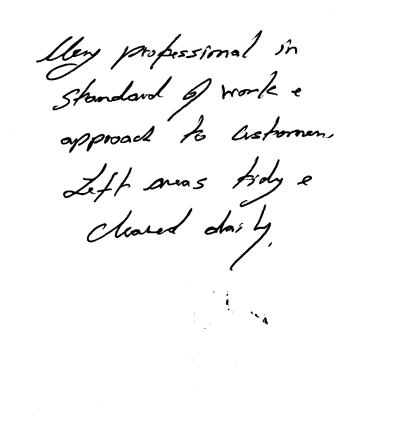 Very professional in
standard of work &
approach to customers.
Left areas tidy &
cleared daily.